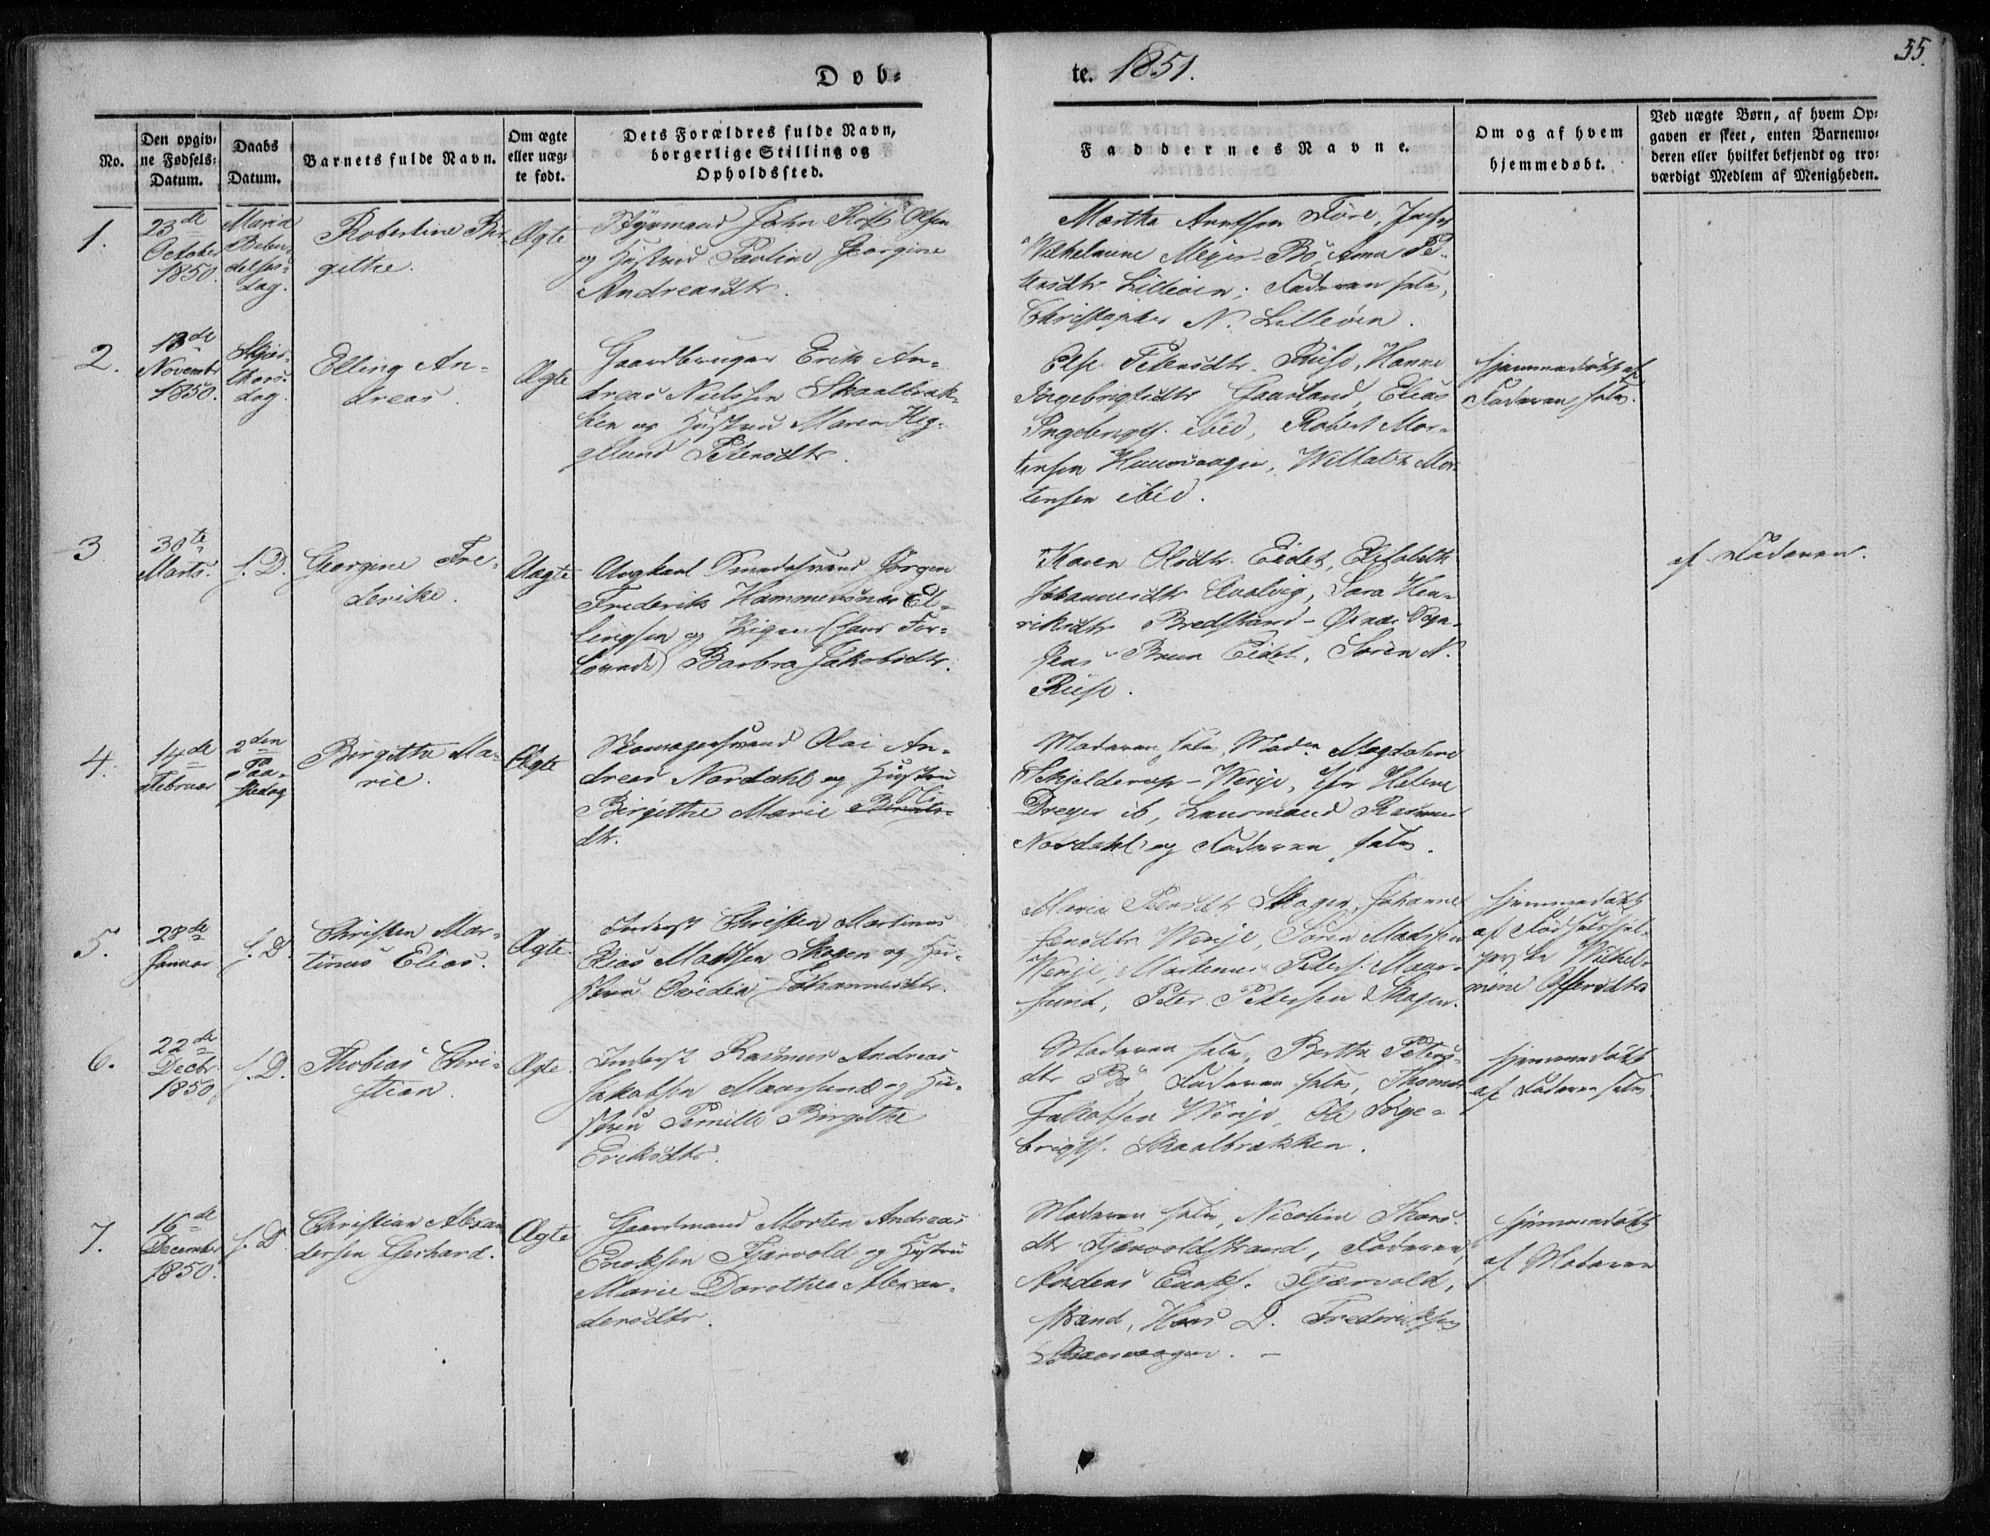 55.
Døb-
te. 1851.
No.
Den opgiv-
ne Fødsels-
Datum.
Daabs
Datum.
Barnets fulde Navn.
Om ægte
eller uæg-
te født.
Dets Forældres fulde Navn,
borgerlige Stilling og
Opholdssted.
Faddernes Navne.
Om og af hvem
hjemmedøbt.
Ved uægte Børn, af hvem Op-
gaven er skeet, enten Barnemo-
deren eller hvilket bekjendt og tro-
værdigt Medlem af Menigheden.
1.
23de
October
1850.
Maria
Bebu-
delses-
dag.
Robertine Bir-
githe.
Ægte
Styrmand John Olsen
og Hustru Pauline Georgine
Andreasdtr.
Martha Arntsen Føre,
Vilhelmine Meyer Bø, Anna Pe-
tersdtr Lilleøen, Faderen selv,
Christopher N. Lilleøen.
2.
13de
Novembr
1850.
Skjær-
thors-
dag.
Elling An-
dreas.
Ægte
Gaardbruger Erik An-
dreas Nielsen Skaalbrak-
ken og Hustru Maren Heg-
gelund Petersdtr.
Else Petersdtr. Riise, Hanna
Ingebrigtsdtr Gaasland, Elias
Ingebrigts. ibid, Robert Mor-
tensen
tensen ibid.
Hjemmedøbt af
Faderen selv.
3
30te
Marts.
f. D.
Georgine Fre-
derike.
Uægte
Ungkarl Jørgen
Frederik Hammersnes El-
lingsen og Pigen (hans For-
lovede) Barbra Jakobsdtr.
Karen Olsdtr. Eidet, Elisabeth
Johannesdtr Qvalvig, Sara Hen-
riksdtr Bredstrand-Øsnes
Jens Brun Eidet, Søren N.
Riise.
af Faderen.
4.
14de
Februar
2den
Paa-
skedag
Birgitha Ma-
rie.
Ægte
Olai An-
dreas Nordahl og Hustru
Birgithe Marie
dtr.
Moderen selv, Mad. Magdalene
Skjelderup-Werje, Helene
Dreyer ib, Lensmand Rasmus
Nordahl og Faderen selv.
5.
28de
Januar
f. D.
Christen Mar-
tinus Elias.
Ægte
Inderst Christen Martinus
Elias Madsen Skogen og Hu-
stru Ovidia Johannesdtr.
Maria Petersdtr Skogen, Johanne
Werje, Søren Madsen
Werje, Martinus Peters. Maar-
sund, Peter Petersen Skogen.
Hjemmedøbt
af Fødselshjel-
Vilhel-
mine Offersdtr
6.
22de
Decbr
1850
f. D.
Thobias Chri-
stian.
Ægte
Inderst Rasmus Andreas
Jakobsen Maarsund og Hu-
stru Pernille Birgithe
Eriksdtr.
Moderen selv, Bertha Peters-
dtr Bø, Faderen selv, Thomas
Jakobsen Werje, Ole Inge-
brigts. Skaalbrakken.
Hjemmedøbt
af Faderen selv.
7.
16de
December
1850.
f. D
Christian Alexan
dersen Gerhard.
Ægte
Gaardmand Morten Andreas
Enoksen Fjærvold og Hustru
Marie Dorothea Alexan-
dersdtr.
Moderen selv, Nicoline Thors-
dtr Fjærvoldstrand, Faderen,
Anders Enoks. Fjærvold,
strand, Hans D. Frederiksen
Hjemmedøbt
af Moderen